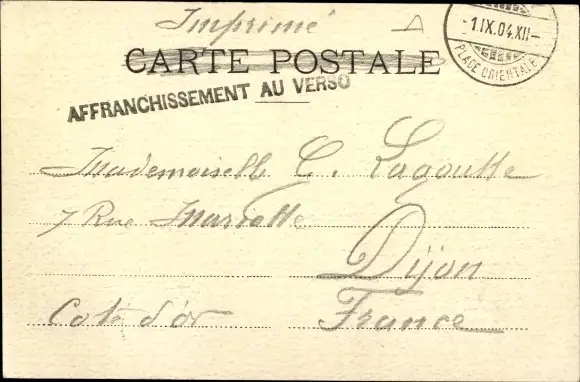 Imprimé
CARTE POSTALE
AFFRANCHISSEMENT AU VERSO
-1.IX.04.XII-
PLACE ORIENTALE
Mademoiselle C. Lagoutte
7 Rue Mariotte
Dijon
Cote d'or France